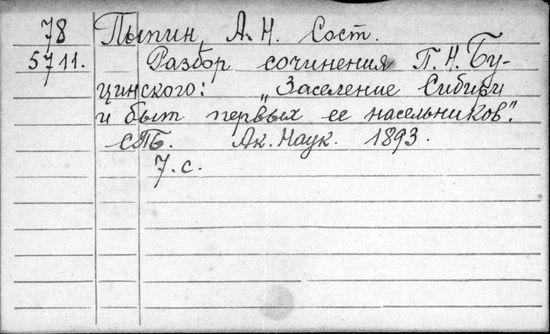 78 Пыпин, А. Н. Сост.
5711. Разбор сочинения П. Н. Бу-
цинского: „Заселение Сибири
и быт первых ее насельников".
СПБ. Ак. Наук. 1893.
7. с.